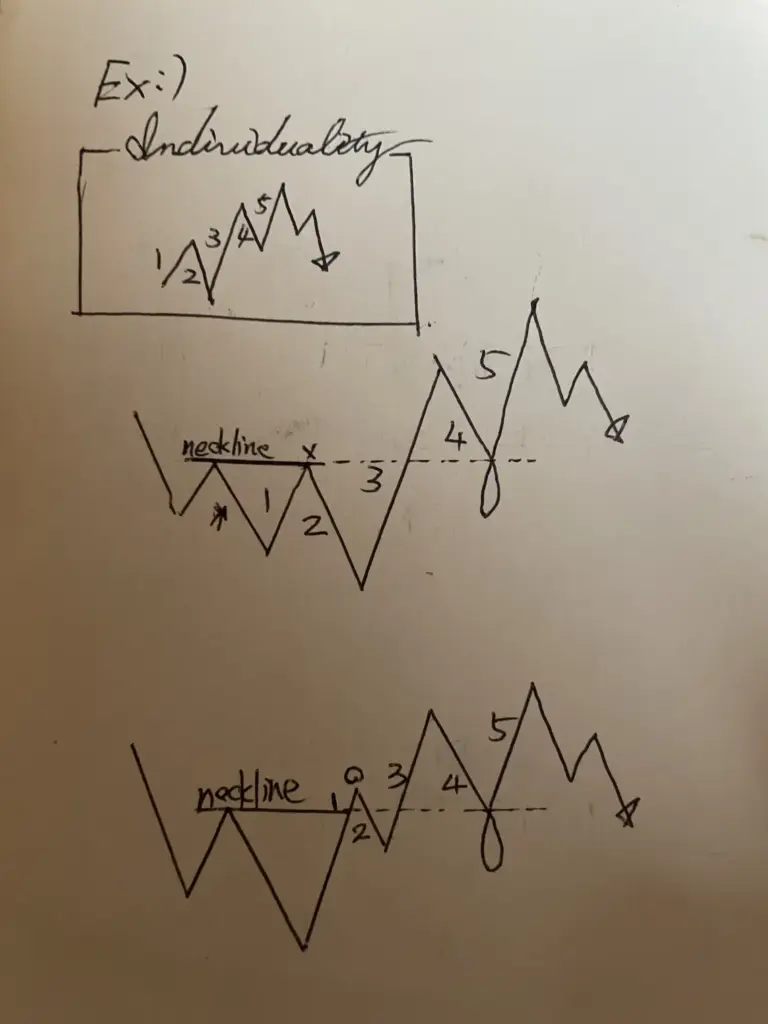 Ex:)
Individuality
1 2 3 4 5
5
4
neckline x
3
1
2
5
3 4
neckline 1
2